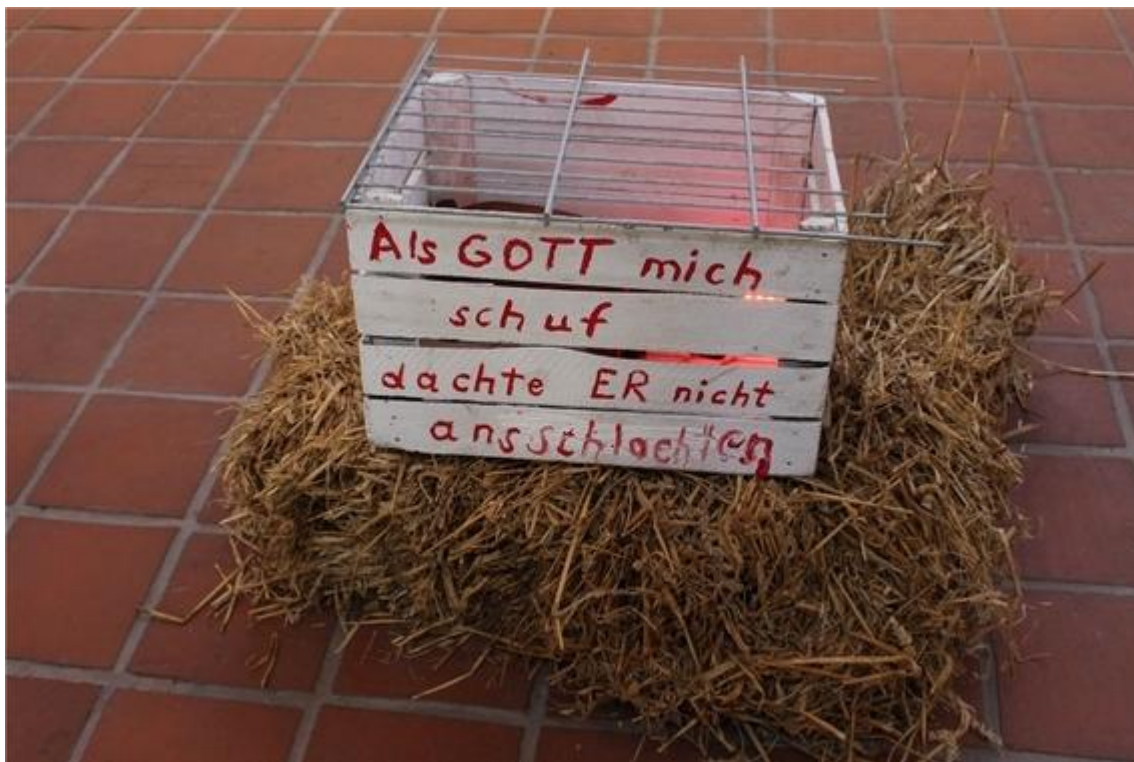 Als GOTT mich
schuf
dachte ER nicht
ans schlachten